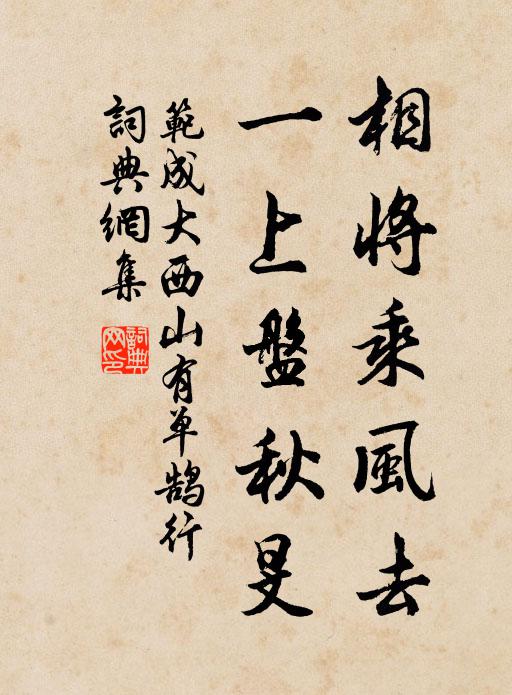 相將乘風去
一上盤秋旻
範成大西山有單鵠行
詞典網集
詞典网印